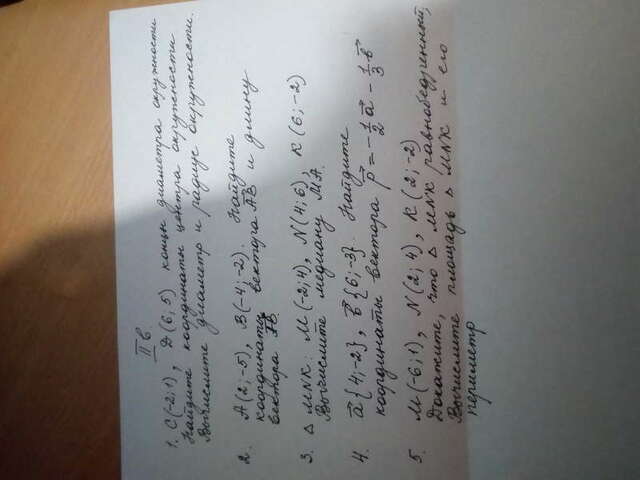 II в
1. С(-2; 1), D(6; 5) концы диаметра окружности
Найдите координаты центра окружности
Вычислите диаметр и радиус окружности.
2. А(2; -5), В(-4; -2). Найдите
координаты вектора АВ и длину
вектора АВ.
3. △ MNK: M(-2; 4), N(4; 6), K(6; -2)
Вычислите медиану МА.
4. a{4; -2}, b{6; -3}. Найдите
координаты вектора p = -1/2 a - 1/3 b
5. M(-6; 1), N(2; 4), K(2; -2)
Докажите, что △ MNK равнобедренный,
Вычислите площадь △ MNK и его
периметр